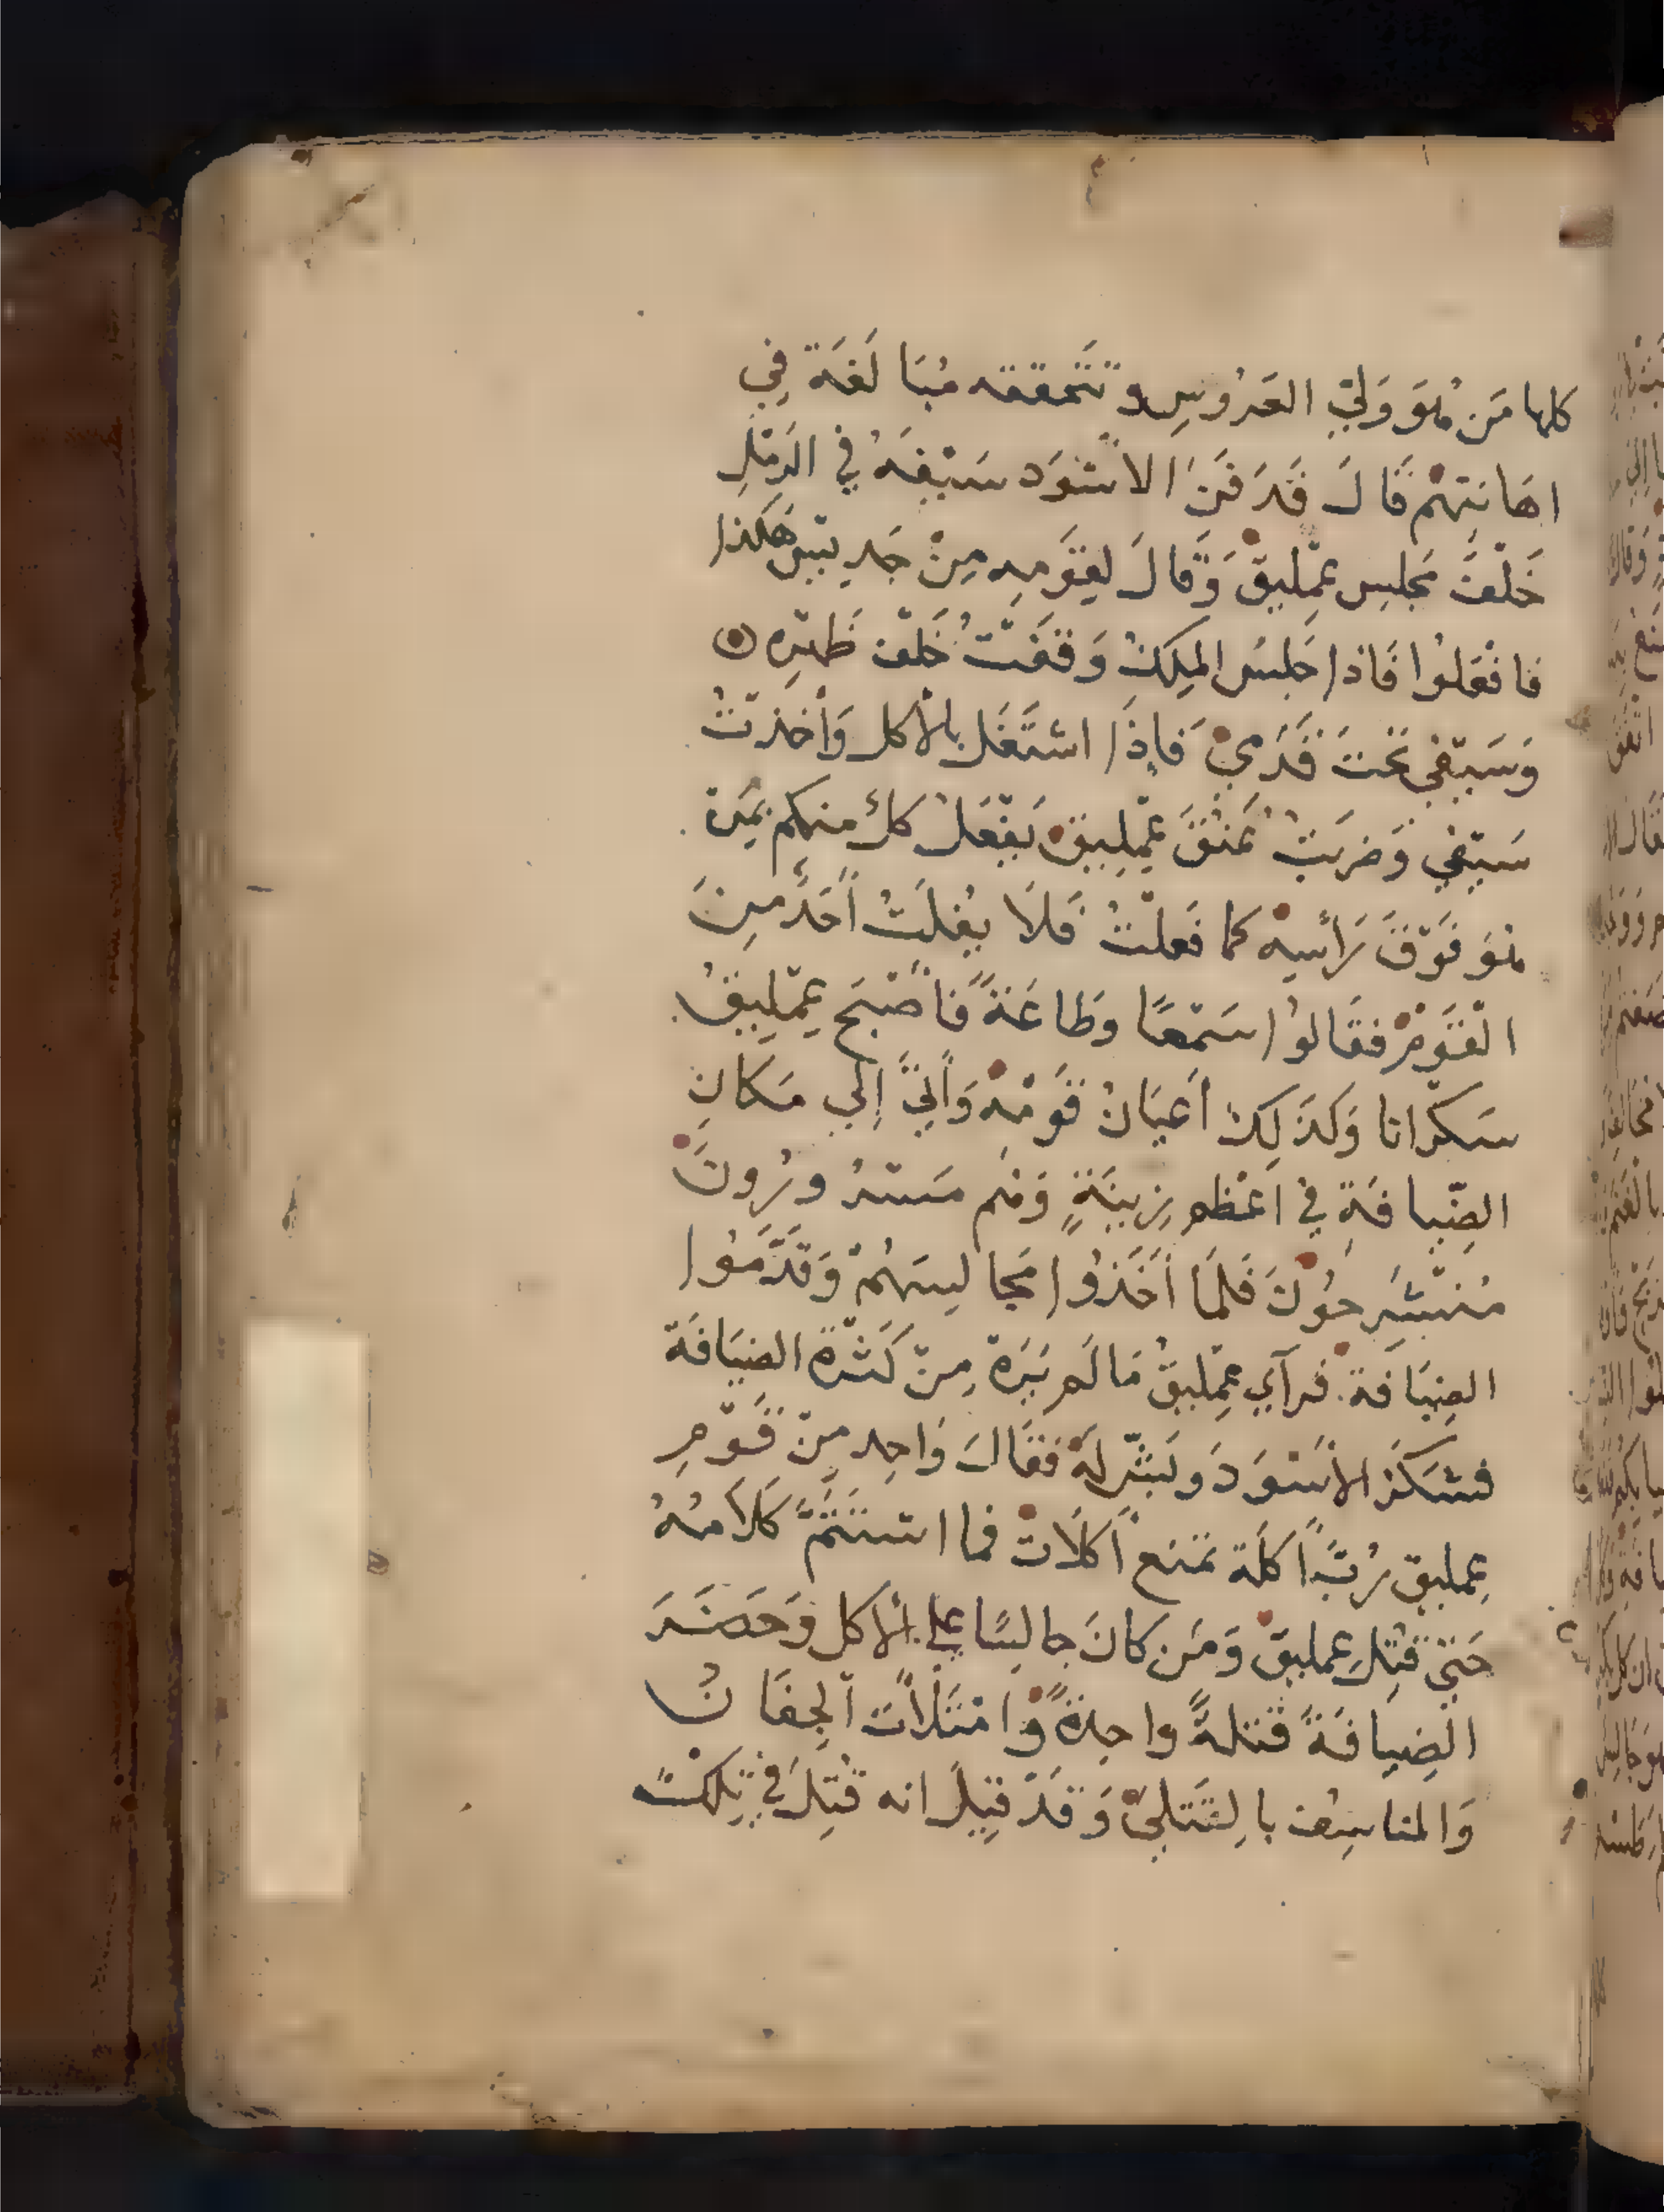 كلها مَن هُوَ وَلِيّ العَرُوسِ وتتحققه مُبَالَغَة فِي
اهَانَتِهِمْ قَالَ فَدَفَنَ الاسْوَد سَيْفَهُ في الرَمْلِ
خَلْفَ مَجلِس عِمْلِيقْ وَقَالَ لِقَوْمِهِ مِنْ جَدِيسْ هَكذا
فافْعَلُوا فَاذا جَلسَ المِلكْ وَقَفْتُ خَلْف ظَهْرِه
وَسَيْفِي تَحْتَ قَدَمِيْ فَإِذَا اشتَغَل بالأكل وَأخَذتُ
سَيْفِي وَضَربْتُ عُنْقَ عِمْلِيقْ يَفْعَلْ كلُ منكم بمَن
هوَ فَوْقَ رَأسِهْ كما فَعلْتُ فَلَا يفْلتُ أحَدٌ مِنَ
القَوْمْ فقَالوُا سَمْعًا وَطاعَةً فَأصْبَح عِمْلِيقْ
سَكرانا وَكذَلِكَ أعيَانْ قَوْمِهْ وَأتيَ إلي مَكَانِ
الضِّيافَةِ في اعْظم زِينَةٍ وَهُم مَسْرُورُونَ
مُنْشَرِحُوْنَ فَلمَا أخَذُوا مَجالِسَهُمْ وَقَدَّمُوا
الضِيَافَة فرآي عِمْلِيقُ مَا لَم يَرَهْ مِنْ كَثْرَة الضِيَافَة
فشكَرَ الأَسْوَدَ وبَشّر لَهْ فقَالَ وَاحِد مِنْ قَوْمِ
عِمليق رُبَّ أكلَة تمنع أكلَات فما اسْتَتَمَّ كَلَامُهُ
حَتيّ قتِل عِمليق وَمَن كانَ جالِسًا علي الأكل وَحَضَرَ
الضِيافَةَ قتلةً واحِدةً وَامْتَلأت الجِفَانُ
وَالمناسِف بالقَتْلَي وَقَدْ قِيلَ انه قُتِلَ في تِلكَ